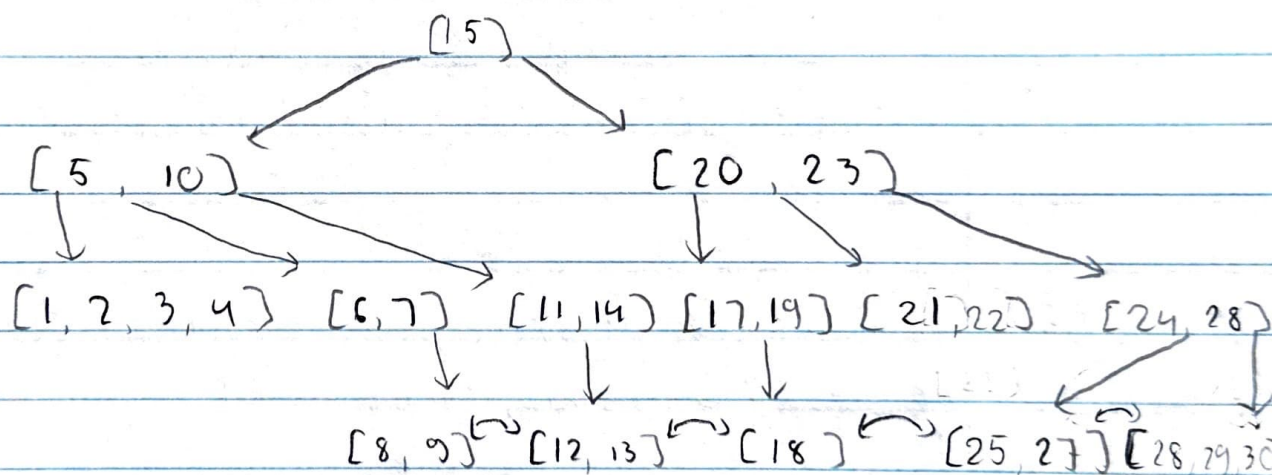 [15]
[5, 10] [20, 23]
[1, 2, 3, 4] [6, 7] [11, 14] [17, 19] [21, 22] [24, 28]
[8, 9] [12, 13] [18] [25, 27] [28, 29, 30